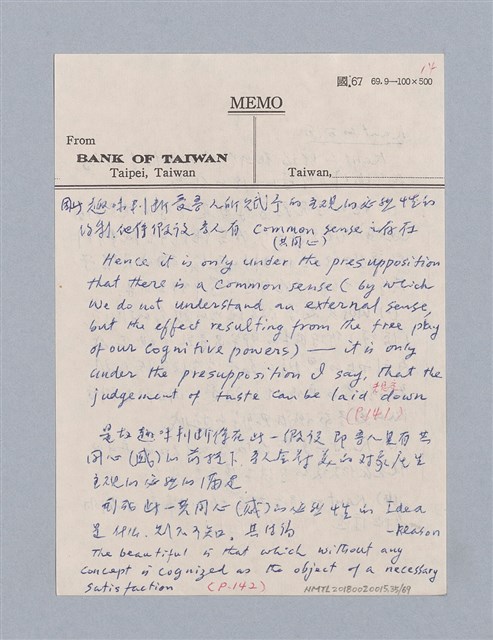 14
國.67 69.9—100×500
MEMO
From
BANK OF TAIWAN
Taipei, Taiwan
Taiwan,
因此趣味判斷受吾人所賦予的主觀的必然性的
假設吾人有 Common sense 之存在
(共同心)
Hence it is only under the presupposition
that there is a common sense (by which
we do not understand an external sense,
but the effect resulting from the free play
of our cognitive powers) — it is only
under the presupposition I say, that the
judgement of taste can be laid down
(P.141)
是故趣味判斷係在此一假設 即吾人具有共
同心(感)的前提下 吾人會對美的对象產生
主觀的必然的滿足
此一共同心(感)的必然性的 Idea
是什么 則不可知
—Reason
The beautiful is that which without any
concept is cognized as the object of a necessary
satisfaction (P.142)
NMTL20180020015.35/69